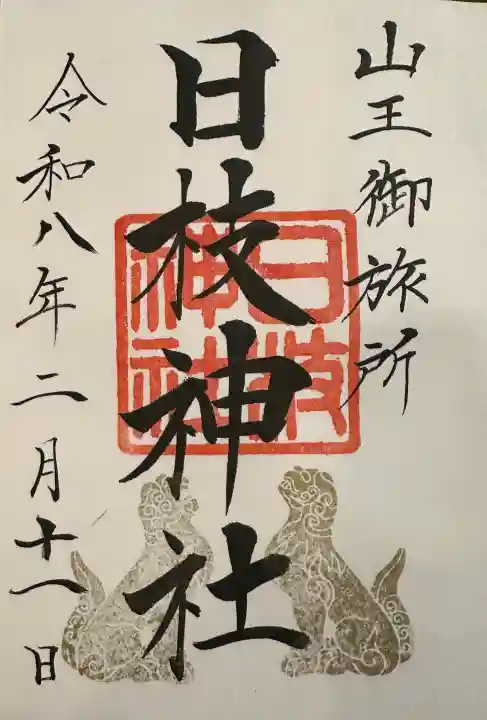 山王御旅所
日枝神社
日枝
神社
令和八年二月十一日